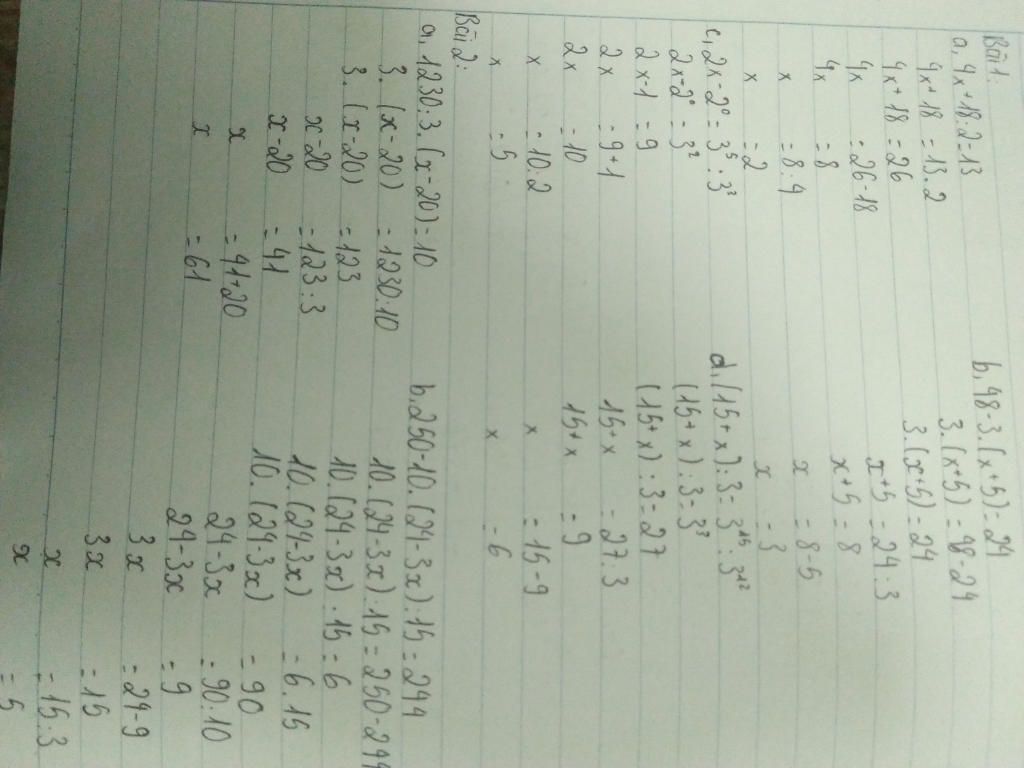 Bài 1:
a, 4x+18:2=13
4x+18 = 13.2
4x+18 = 26
4x = 26-18
4x = 8
x = 8:4
x = 2
b, 48-3.(x+5)=24
3.(x+5) = 48-24
3.(x+5) = 24
x+5 = 24:3
x+5 = 8
x = 8-5
x = 3
c, 2x-2⁰=3⁵:3³
2x-2⁰=3²
2x-1 = 9
2x = 9+1
2x = 10
x = 10:2
x = 5
d, (15+x):3=3¹⁵:3¹²
(15+x):3=3³
(15+x):3=27
15+x = 27:3
15+x = 9
x = 15-9
x = 6
Bài 2:
a, 1230:3.(x-20)=10
3.(x-20) = 1230:10
3.(x-20) = 123
x-20 = 123:3
x-20 = 41
x = 41+20
x = 61
b, 250-10.(24-3x):15=244
10.(24-3x):15=250-244
10.(24-3x):15=6
10.(24-3x) = 6.15
10.(24-3x) = 90
24-3x = 90:10
24-3x = 9
3x = 24-9
3x = 15
x = 15:3
x = 5